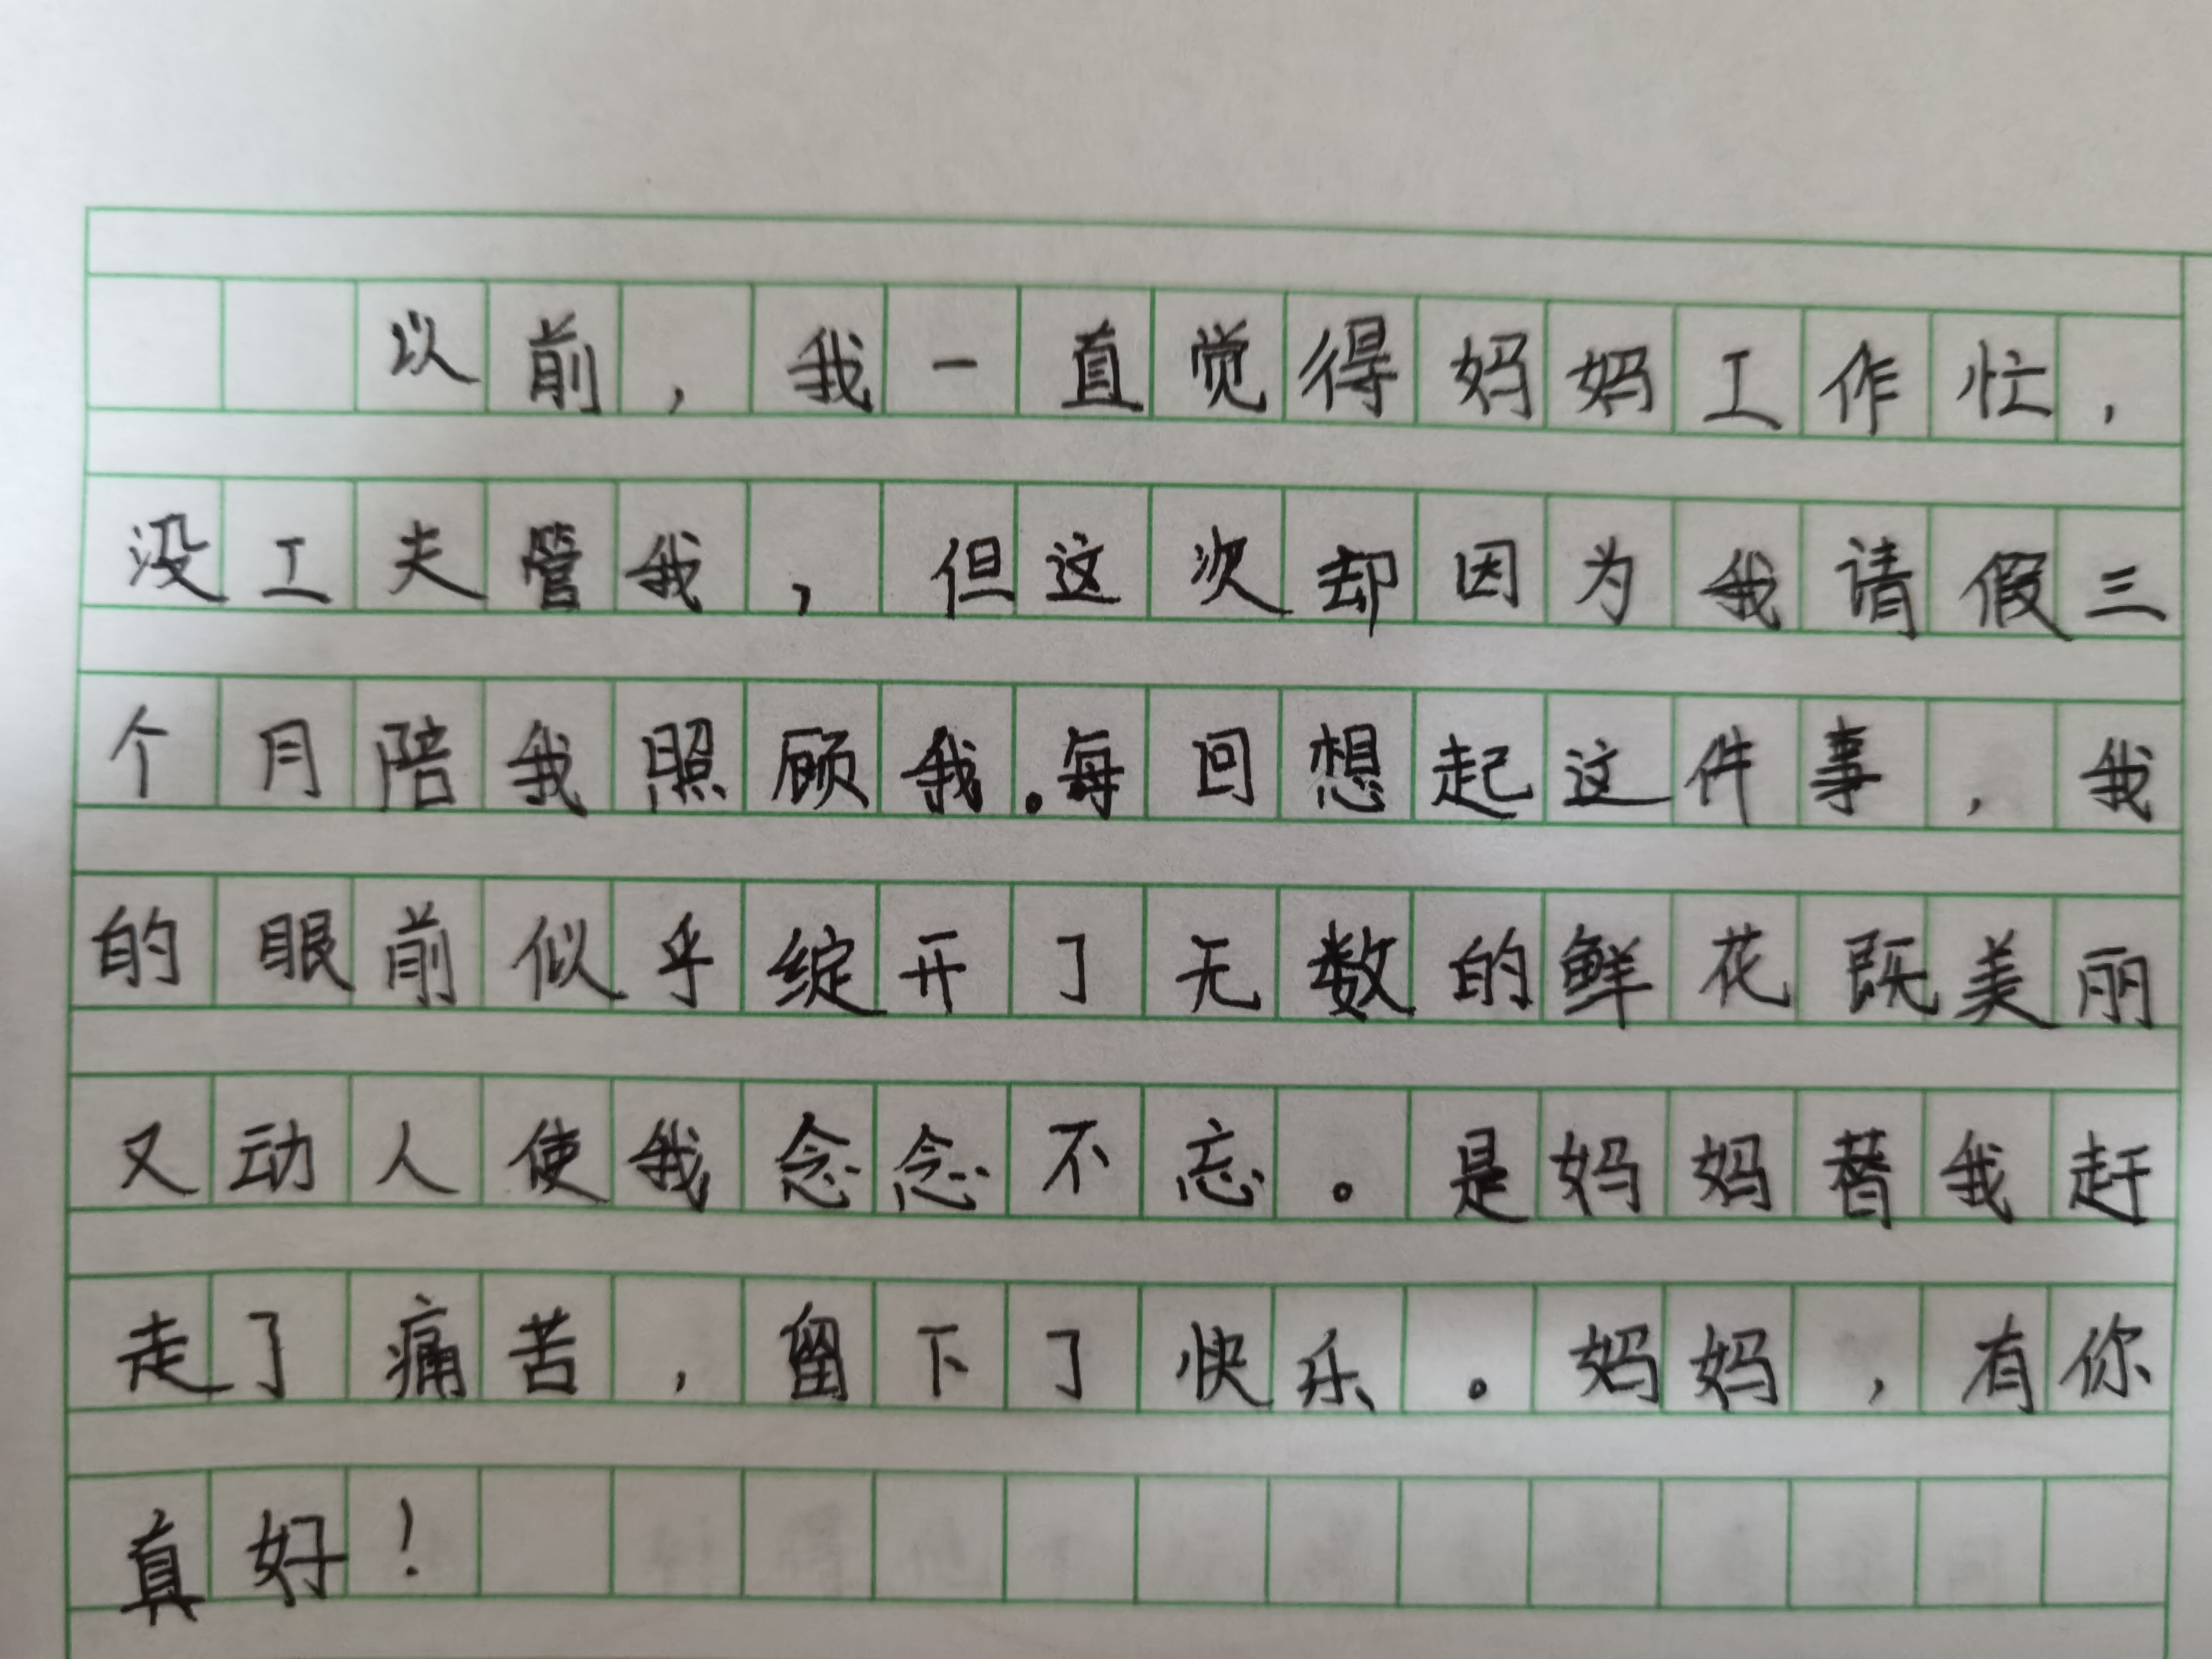 以前，我一直觉得妈妈工作忙，
没工夫管我，但这次却因为我请假三
个月陪我照顾我。每回想起这件事，我
的眼前似乎绽开了无数的鲜花既美丽
又动人使我念念不忘。是妈妈替我赶
走了痛苦，留下了快乐。妈妈，有你
真好！